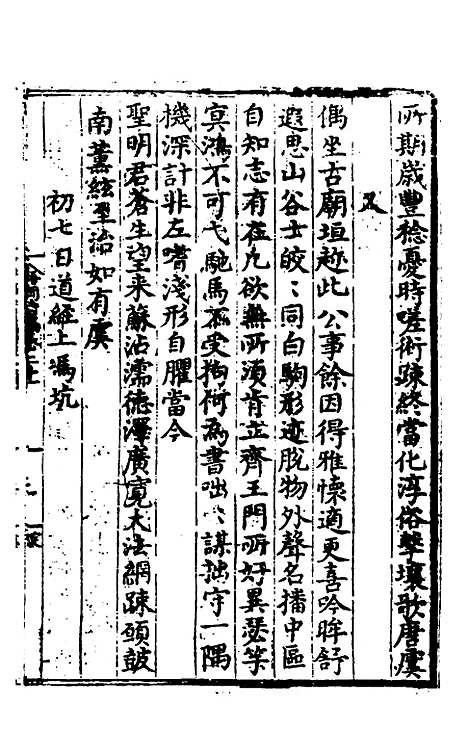 所期歲豐稔憂時嗟術踈終當化淳俗擊壤歌唐虞
又
偶坐古廟垣趂此公事餘因得雅懷適更喜吟眸舒
遐思山谷士皎〻同白駒形迹脫物外聲名播中區
自知志有在凡欲無所須肯立齊王門所好異瑟竽
冥鴻不可弋馳馬焉受拘何為書咄〻謀拙守一隅
機深計非左嗜淺形自臞當今
聖明君蒼生望来蘇沾濡德澤廣寬大法網踈願鼓
南薰絃至治如有虞
初七日道經上馮坑